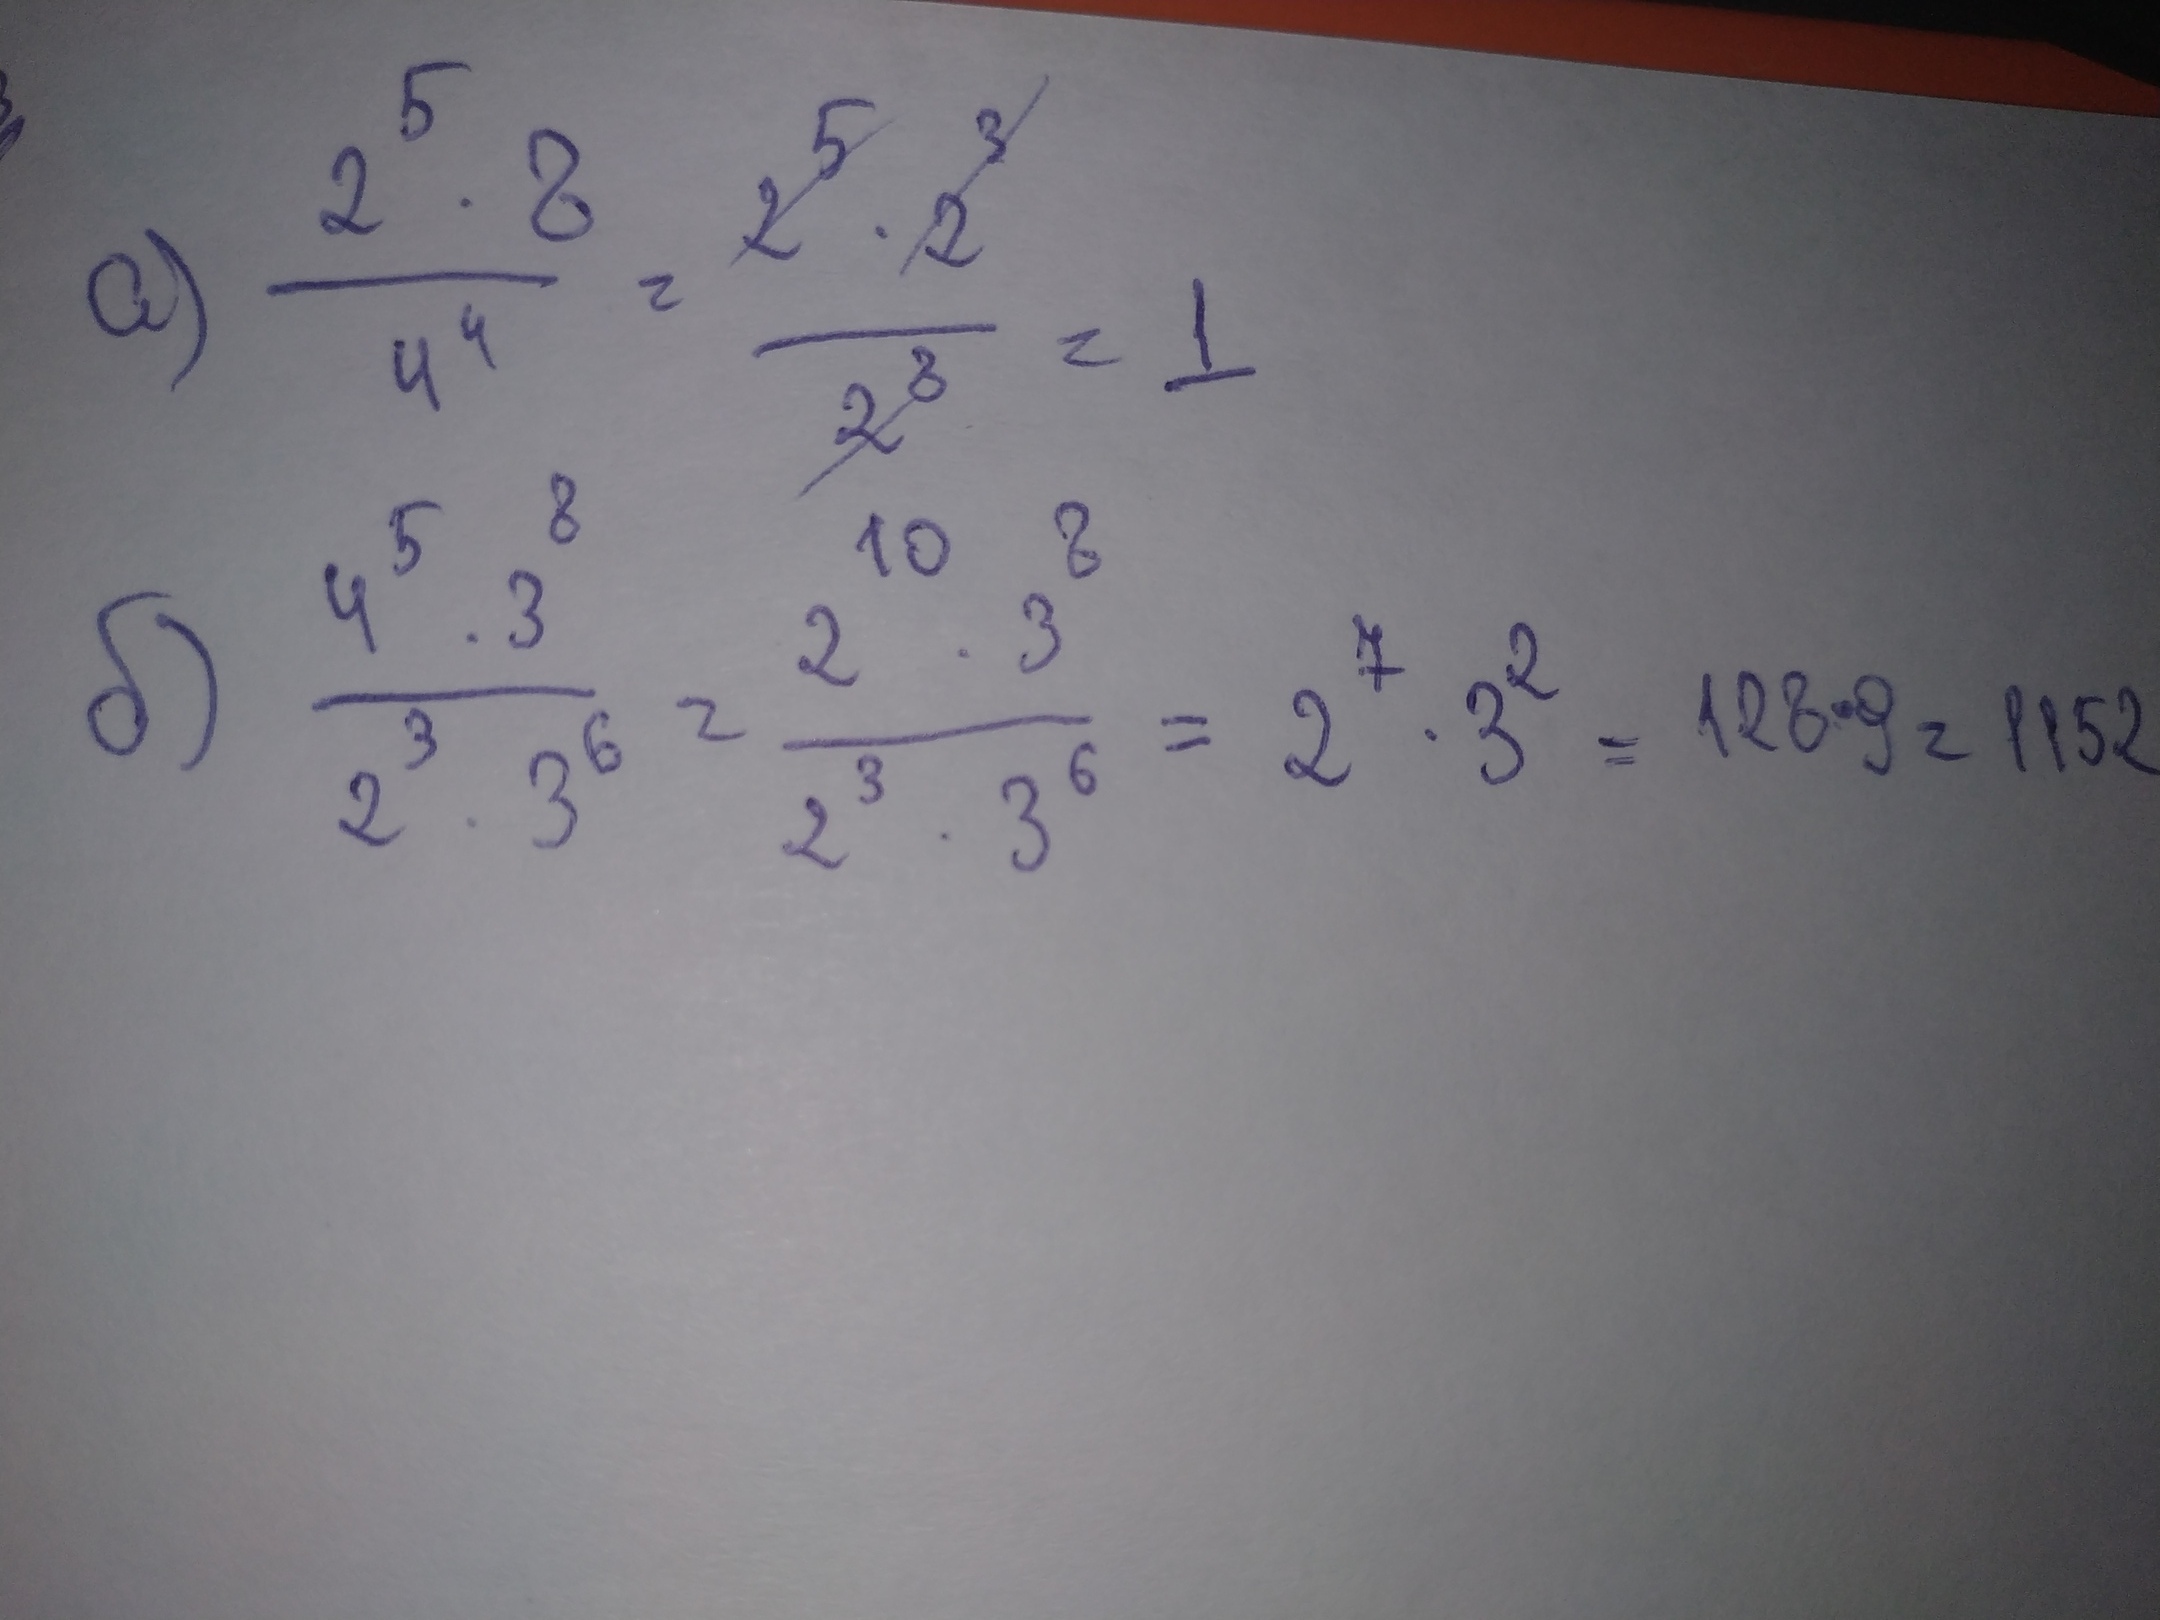 а) 2^5 · 8 / 4^4 = 2^5 · 2^3 / 2^8 = 1
б) 4^5 · 3^8 / 2^3 · 3^6 = 2^10 · 3^8 / 2^3 · 3^6 = 2^7 · 3^2 = 128 · 9 = 1152